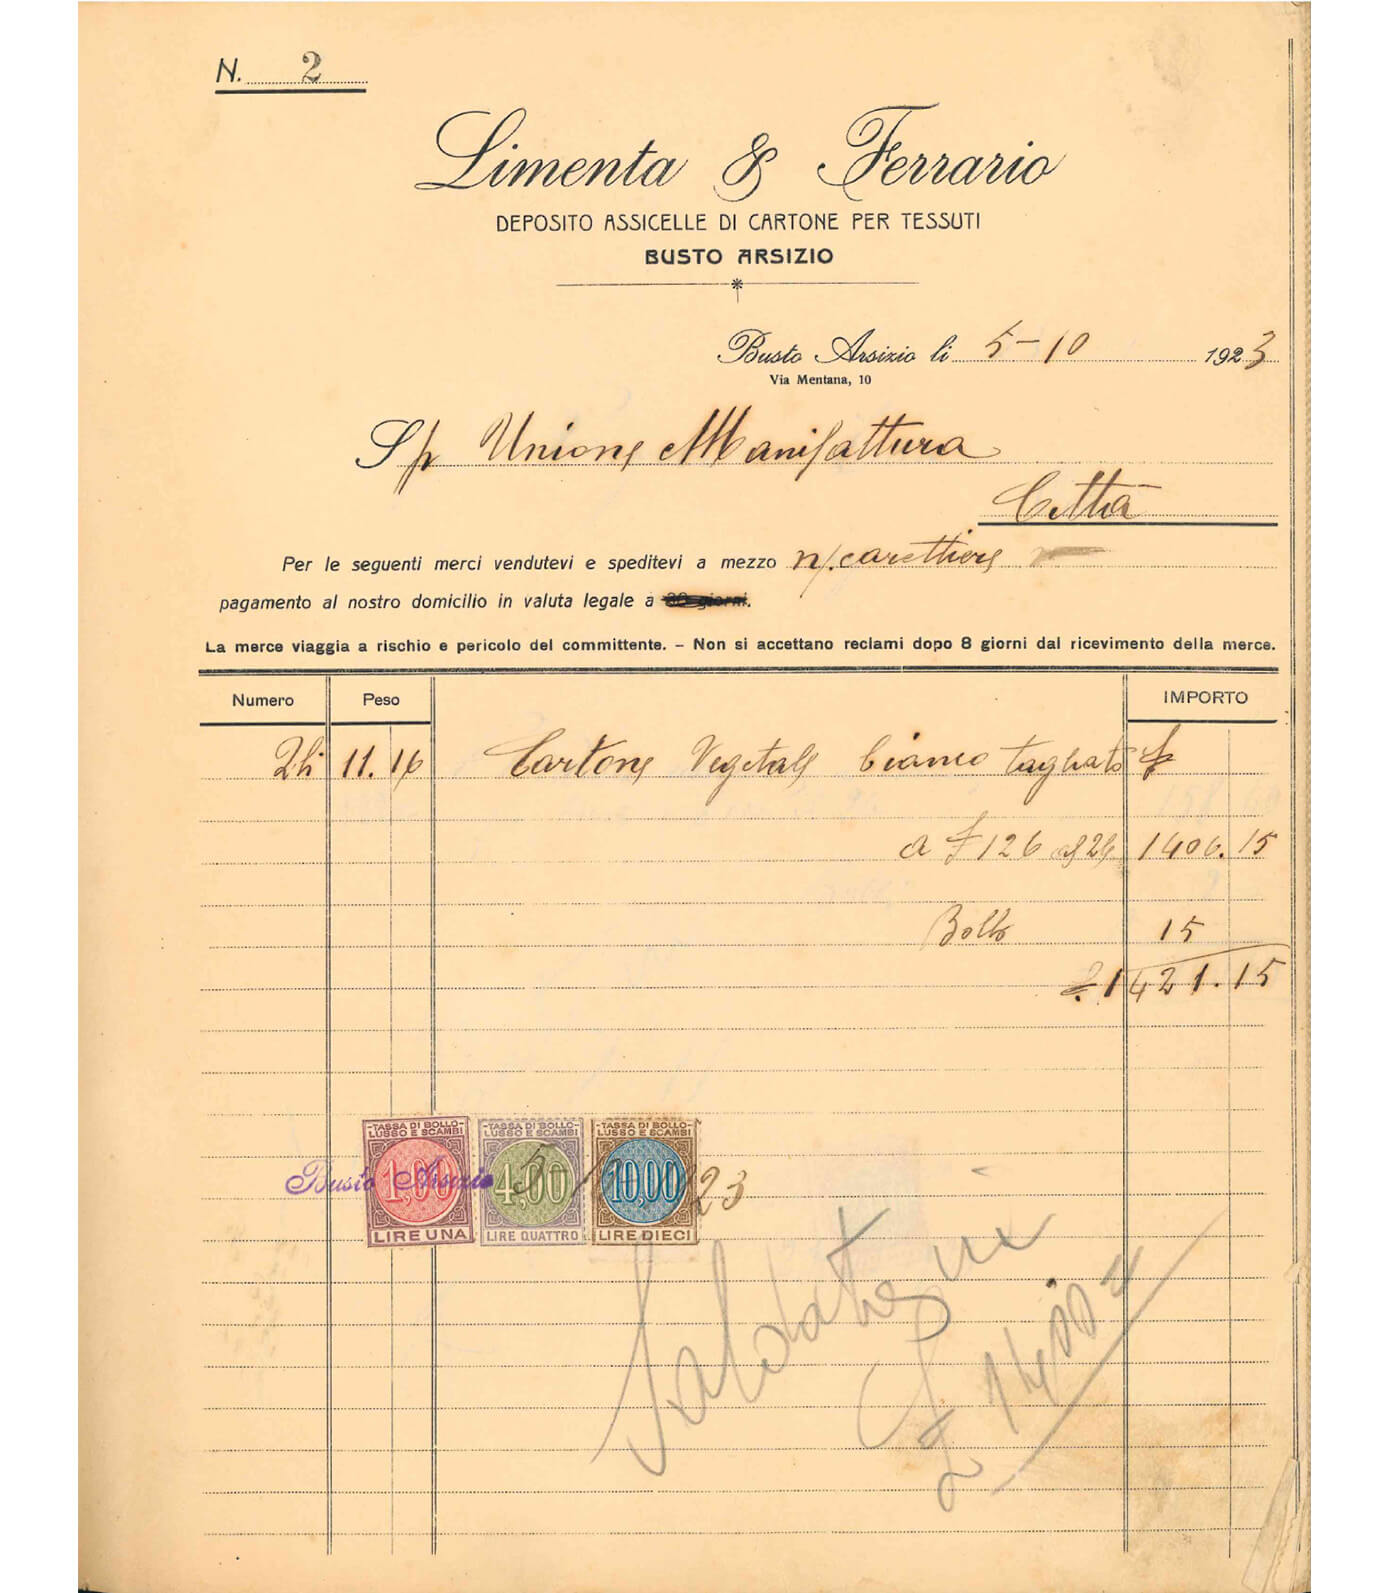 N. 2
Limenta & Ferrario
DEPOSITO ASSICELLE DI CARTONE PER TESSUTI
BUSTO ARSIZIO
Busto Arsizio li 5-10 1923
Via Mentana, 10
Sp Unione Manifattura
Città
Per le seguenti merci vendutevi e speditevi a mezzo n/. carettiere
pagamento al nostro domicilio in valuta legale a 30 giorni.
La merce viaggia a rischio e pericolo del committente. – Non si accettano reclami dopo 8 giorni dal ricevimento della merce.
Numero Peso IMPORTO
11.16 Cartone Vegetale bianco tagliato £
a £ 126 1406.15
Bollo 15
£. 1421.15
TASSA DI BOLLO LUSSO E SCAMBI TASSA DI BOLLO LUSSO E SCAMBI TASSA DI BOLLO LUSSO E SCAMBI
Busto Arsizio 5-10-1923
1,00 4,00 10,00
LIRE UNA LIRE QUATTRO LIRE DIECI
Saldate in
£ 1400